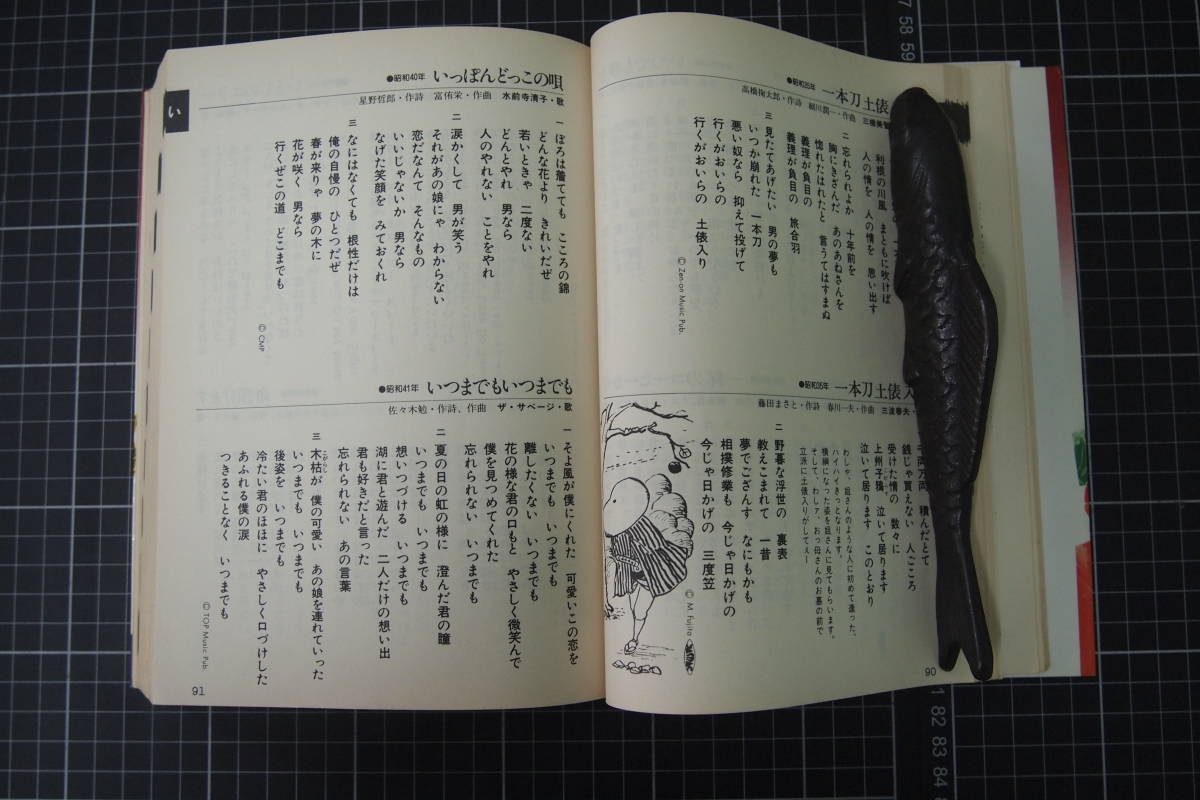 ●昭和35年 一本刀土俵
高橋掬太郎・作詩 細川潤一・作曲
利根の川風 まともに吹けば
人の情を 人の情を 思い出す
二 忘れられよか 十年前を
胸にきざんだ あのあねさんを
惚れたはれたと 言うてはすまぬ
義理が負目の
義理が負目の 旅合羽
三 見たてあげたい 男の夢も
いつか崩れた 一本刀
悪い奴なら 抑えて投げて
行くがおいらの
行くがおいらの 土俵入り
© Zen-on Music Pub.
●昭和35年 一本刀土俵入
藤田まさと・作詩 春川一夫・作曲 三波春夫・
千両万両 積んだとて
銭じゃ買えない 人ごころ
受けた情の 数々に
上州子守唄 泣いて居ります
泣いて居ります このとおり
わしゃ、姐さんのような人に初めて逢った、
ハイハイきっとなります。
横綱になった姿を姐さんに見てもらいます。
そして、わしァ、おっ母さんのお墓の前で
立派に土俵入りがしてぇー
二 野暮な浮世の 裏表
教えこまれて 一昔
夢でござんす なにもかも
相撲修業も 今じゃ日かげの
今じゃ日かげの 三度笠
© M. Fujita
90
い
●昭和40年 いっぽんどっこの唄
星野哲郎・作詩 富侑栄・作曲 水前寺清子・歌
一 ぼろは着てても こころの錦
どんな花より きれいだぜ
若いときゃ 二度ない
どんとやれ 男なら
人のやれない ことをやれ
二 涙かくして 男が笑う
それがあの娘にゃ わからない
恋だなんて そんなもの
いいじゃないか 男なら
なげた笑顔を みておくれ
三 なにはなくても 根性だけは
俺の自慢の ひとつだぜ
春が来りゃ 夢の木に
花が咲く 男なら
行くぜこの道 どこまでも
© CMP
●昭和41年 いつまでもいつまでも
佐々木勉・作詩、作曲 ザ・サベージ・歌
一 そよ風が僕にくれた 可愛いこの恋を
いつまでも いつまでも
離したくない いつまでも
花の様な君の口もと やさしく微笑んで
僕を見つめてくれた
忘れられない いつまでも
二 夏の日の虹の様に 澄んだ君の瞳
いつまでも いつまでも
想いつづける いつまでも
湖に君と遊んだ 二人だけの想い出
君も好きだと言った
忘れられない あの言葉
三 木枯が 僕の可愛い あの娘を連れていった
いつまでも いつまでも
後姿を いつまでも
冷たい君のほほに やさしく口づけした
あふれる僕の涙
つきることなく いつまでも
© TOP Music Pub.
91
57 58 59
81 82 83 84